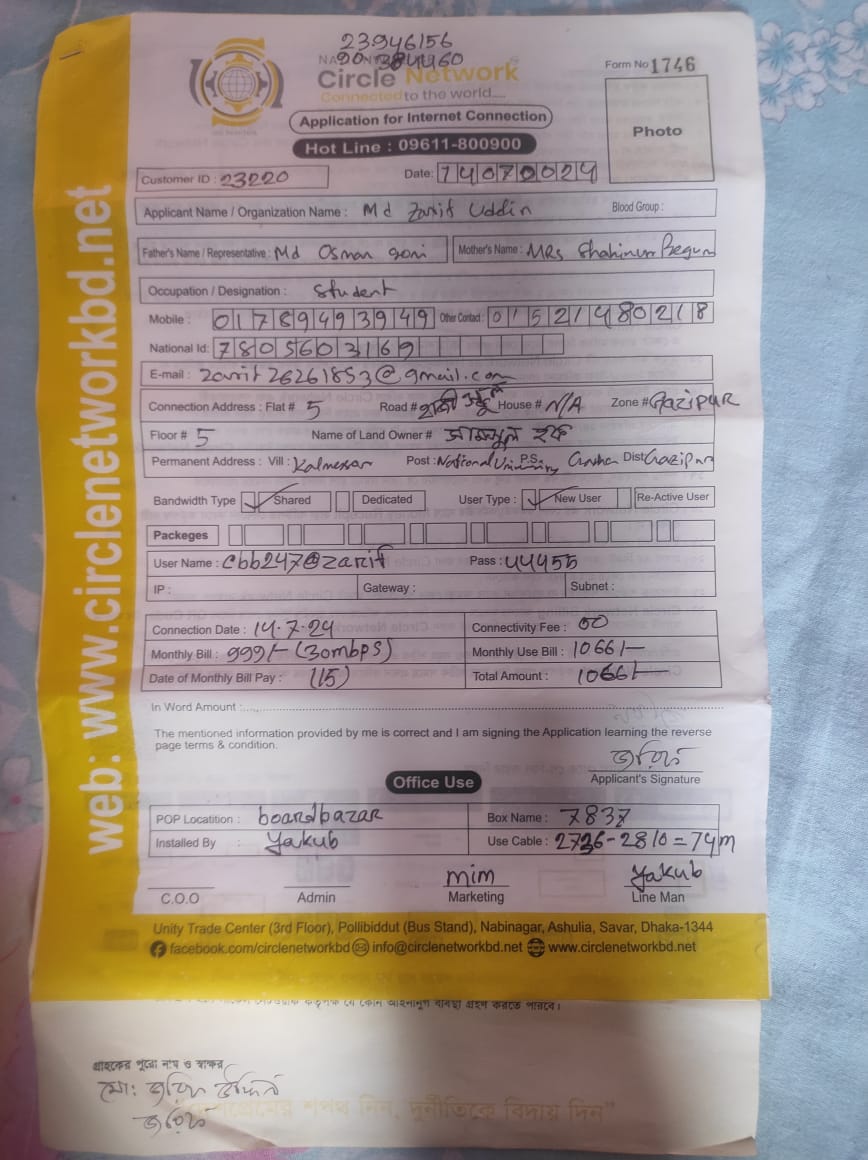 23946156
NATIONWIDE
Circle Network
Connected to the world....
Form No 1746
Application for Internet Connection
Photo
Hot Line : 09611-800900
Customer ID : 23220 Date: 14070024
Applicant Name / Organization Name : Md Zarif Uddin Blood Group :
Father's Name / Representative : Md Osman goni Mother's Name : MRS Shahinur Begum
Occupation / Designation : Student
Mobile : 01789493949 Other Contact : 01521480218
National Id: 7805603169
E-mail : zarif26261853@gmail.com
Connection Address : Flat # 5 Road # হাজী House # N/A Zone # Gazipur
Floor # 5 Name of Land Owner # হক
Permanent Address : Vill : Kalmessor Post : National University P.S. Gacha Dist: Gazipur
Bandwidth Type Shared Dedicated User Type : New User Re-Active User
Packeges
User Name : cbb247@zarif Pass : 44455
IP : Gateway : Subnet :
Connection Date : 14.7.24 Connectivity Fee : 00
Monthly Bill : 999/- (30mbps) Monthly Use Bill : 1066/-
Date of Monthly Bill Pay : (15) Total Amount : 1066/-
In Word Amount :
The mentioned information provided by me is correct and I am signing the Application learning the reverse
page terms & condition.
জারিফ
Applicant's Signature
Office Use
POP Locatition : boardbazar Box Name : 7837
Installed By : Yakub Use Cable : 2736-2810=74m
mim Yakub
C.O.O Admin Marketing Line Man
Unity Trade Center (3rd Floor), Pollibiddut (Bus Stand), Nabinagar, Ashulia, Savar, Dhaka-1344
facebook.com/circlenetworkbd info@circlenetworkbd.net www.circlenetworkbd.net
web: www.circlenetworkbd.net
যে কোন আইনানুগ ব্যবস্থা গ্রহণ করতে পারবে।
গ্রাহকের পুরো নাম ও স্বাক্ষর
মো: জারিফ উদ্দিন
জারিফ
শপথ নিন, দুর্নীতিকে বিদায় দিন"